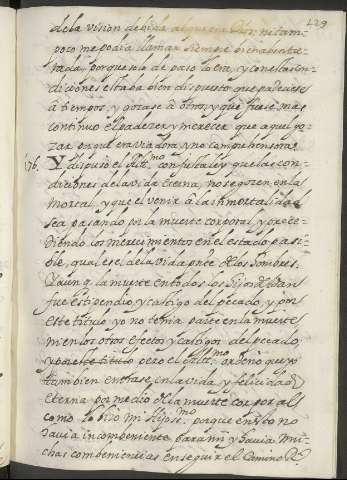 429
de la vision de Dios
poco me podia llamar siempre bienabentu-
rada, porque era de paso la ra, y con estas con-
diciones estaba bien dispuesto que padeciese
a tiempos, y gozase a otros, y que fuese mas
continuo el padezer y merecer que aquel go-
zar, porque era viadora y no comprehensora.
176. Y dispuso el Altmo. con justa ley que las con-
diciones de la vida eterna, no se gozen en la
mortal, y que el venir a la immortalidad
sea pasando por la muerte corporal y prece-
diendo los merecimientos en el estado pasi-
ble, qual es el de la vida presente de los hombres.
Y aunq. la muerte en todos los hijos de Adan
fue estipendio y castigo del pecado, y por
este titulo yo no tenia parte en la muerte
ni en los otros efectos y castigos del pecado,
y por este titulo pero el Altmo. ordeno que yo
tambien entrase en la vida, y felicidad
eterna por medio de la muerte corporal
como lo hizo mi Hijo smo. porque en esto no
havia incombeniente para mi y havia mu-
chas combeniencias en seguir el camino R.l